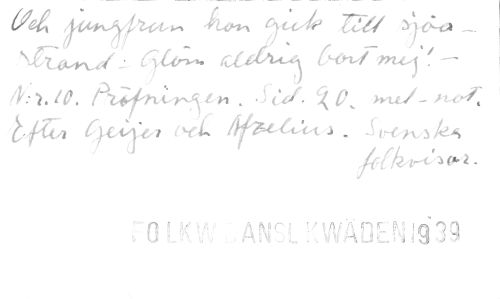 Och jungfrun hon gick till sjöa-
strand: Glöm aldrig bort mej! -
N:r. 10. Pröfningen. Sid. 20. med-not.
Efter Geijer och Afzelius. Svenska
folkvisor.
FOLKW DANSL KWÄDEN 1939